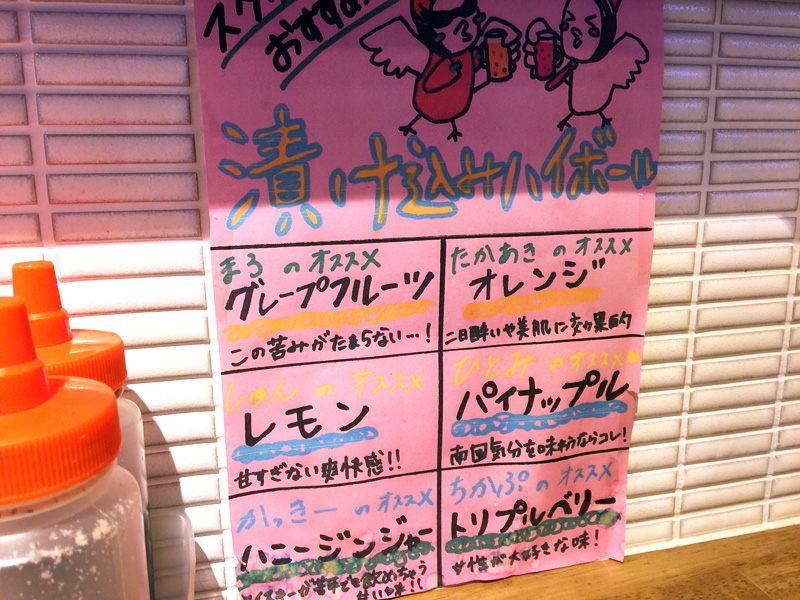 おすすめ
漬け込みハイボール
まろのオススメ
グレープフルーツ
この苦みがたまらない…！
たかあきのオススメ
オレンジ
二日酔いや美肌に効果的
しゅんのオススメ
レモン
甘すぎない爽快感!!
ひとみのオススメ
パイナップル
南国気分を味わうならコレ！
かっきーのオススメ
ハニージンジャー
ウイスキーが苦手でも飲めちゃう
甘い味!!
ちかぷのオススメ
トリプルベリー
女性が大好きな味！